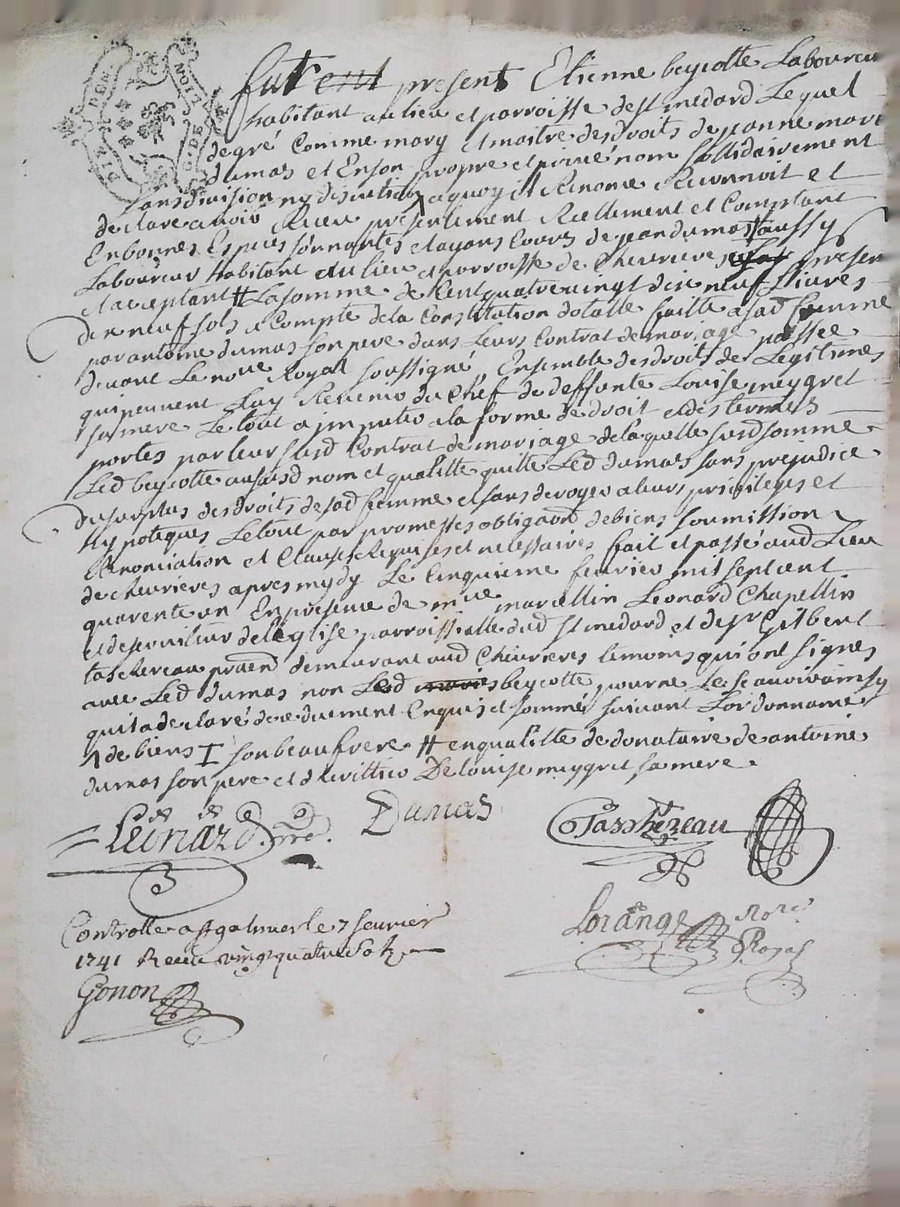 G. DE LYON
fut present Etienne beycotte Laboureur
habitant au lieu et parroisse de st medard Lequel
de gré Comme mary et maitre des droits de jeanne marie
dumas et En son propre et privé nom sollidairement
sans division ny discution a quoy il Renonce Reconnoit et
declare avoir Receu presentement Reellement et Comptant
En bonnes Especes sonnantes et ayans Cours de jean dumas aussy
Laboureur habitant du lieu et parroisse de Chevrieres present
et acceptant # La somme de Cent quatre vingt dix neuf Livres
dix neuf sols a Compte de la Constitution dotalle faitte a sad femme
par antoine dumas son pere dans Leurs Contrat de mariage passée
devant Le nore Royal soussigné, Ensemble des droits de Legitimes
qui peuvent Luy Revenir du Chef de deffunte Louise meygret
sa mere Le tout a imputer a la forme de droit et des termes
portés par leur susd Contrat de mariage de laquelle susd somme
Led beycotte aususd nom et qualitte quitte Led dumas sans prejudice
du surplus des droits de sad femme et sans deroger a leurs privileges et
hypoteques Le tout par promesses obligaons de biens soumission
Renonciation et Clauses Requises et necessaires fait et passé aud Lieu
de chevrieres apres mydy Le Cinquieme fevrier mil sept cent
quarente un En presence de mre marcellin Leonard Chapellin
et deserviteur de l'Eglise parroissialle dud st medard et de sr Gilbert
taschereau demeurant aud Chevrieres temoins qui ont signés
avec Led dumas non Led beycotte pour ne Le scavoir ainsy
qu'il a declaré de ce duement Enquis et sommé suivant Lordonnance
de biens I son beau frere # en qualitte de donataire de antoine
dumas son pere et d'herittier De louise meygret sa mere.
Leonard pre.
Dumas
G Taschereau
Lorange nore
Royal
Controlle a st galmier le 7 fevrier
1741 Receu vingt quatre sols
Gonon